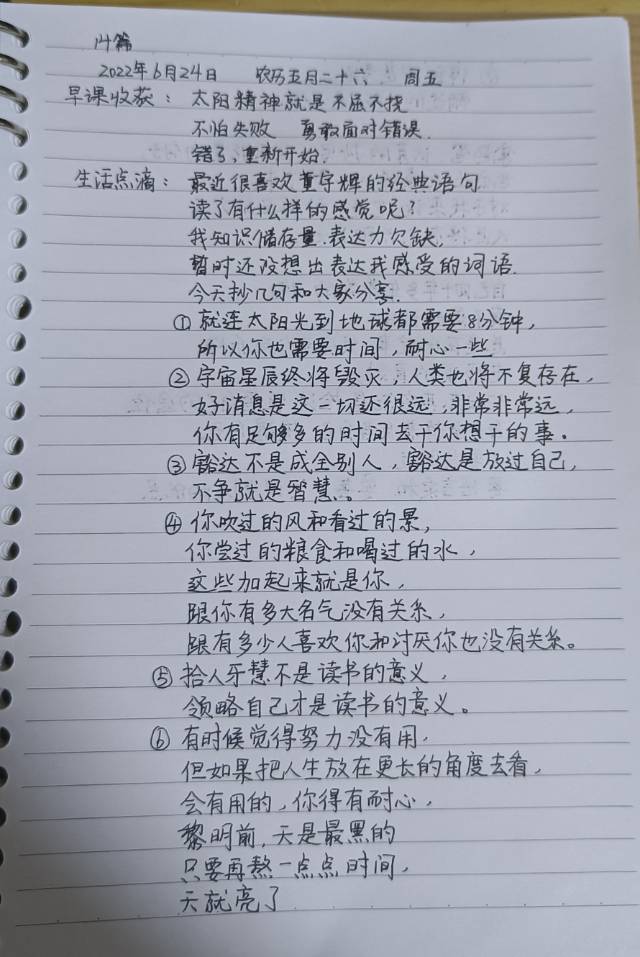 14篇
2022年6月24日 农历五月二十六 周五
早课收获：太阳精神就是不屈不挠
不怕失败 勇敢面对错误.
错了,重新开始.
生活点滴：最近很喜欢董宇辉的经典语句
读了有什么样的感觉呢?
我知识储存量.表达力欠缺,
暂时还没想出表达我感受的词语.
今天抄几句和大家分享.
①就连太阳光到地球都需要8分钟,
所以你也需要时间,耐心一些
②宇宙星辰终将毁灭,人类也将不复存在,
好消息是这一切还很远,非常非常远,
你有足够多的时间去干你想干的事。
③豁达不是成全别人,豁达是放过自己,
不争就是智慧。
④你吹过的风和看过的景,
你尝过的粮食和喝过的水,
这些加起来就是你,
跟你有多大名气没有关系,
跟有多少人喜欢你和讨厌你也没有关系。
⑤拾人牙慧不是读书的意义,
领略自己才是读书的意义。
⑥有时候觉得努力没有用,
但如果把人生放在更长的角度去看,
会有用的,你得有耐心,
黎明前,天是最黑的
只要再熬一点点时间,
天就亮了